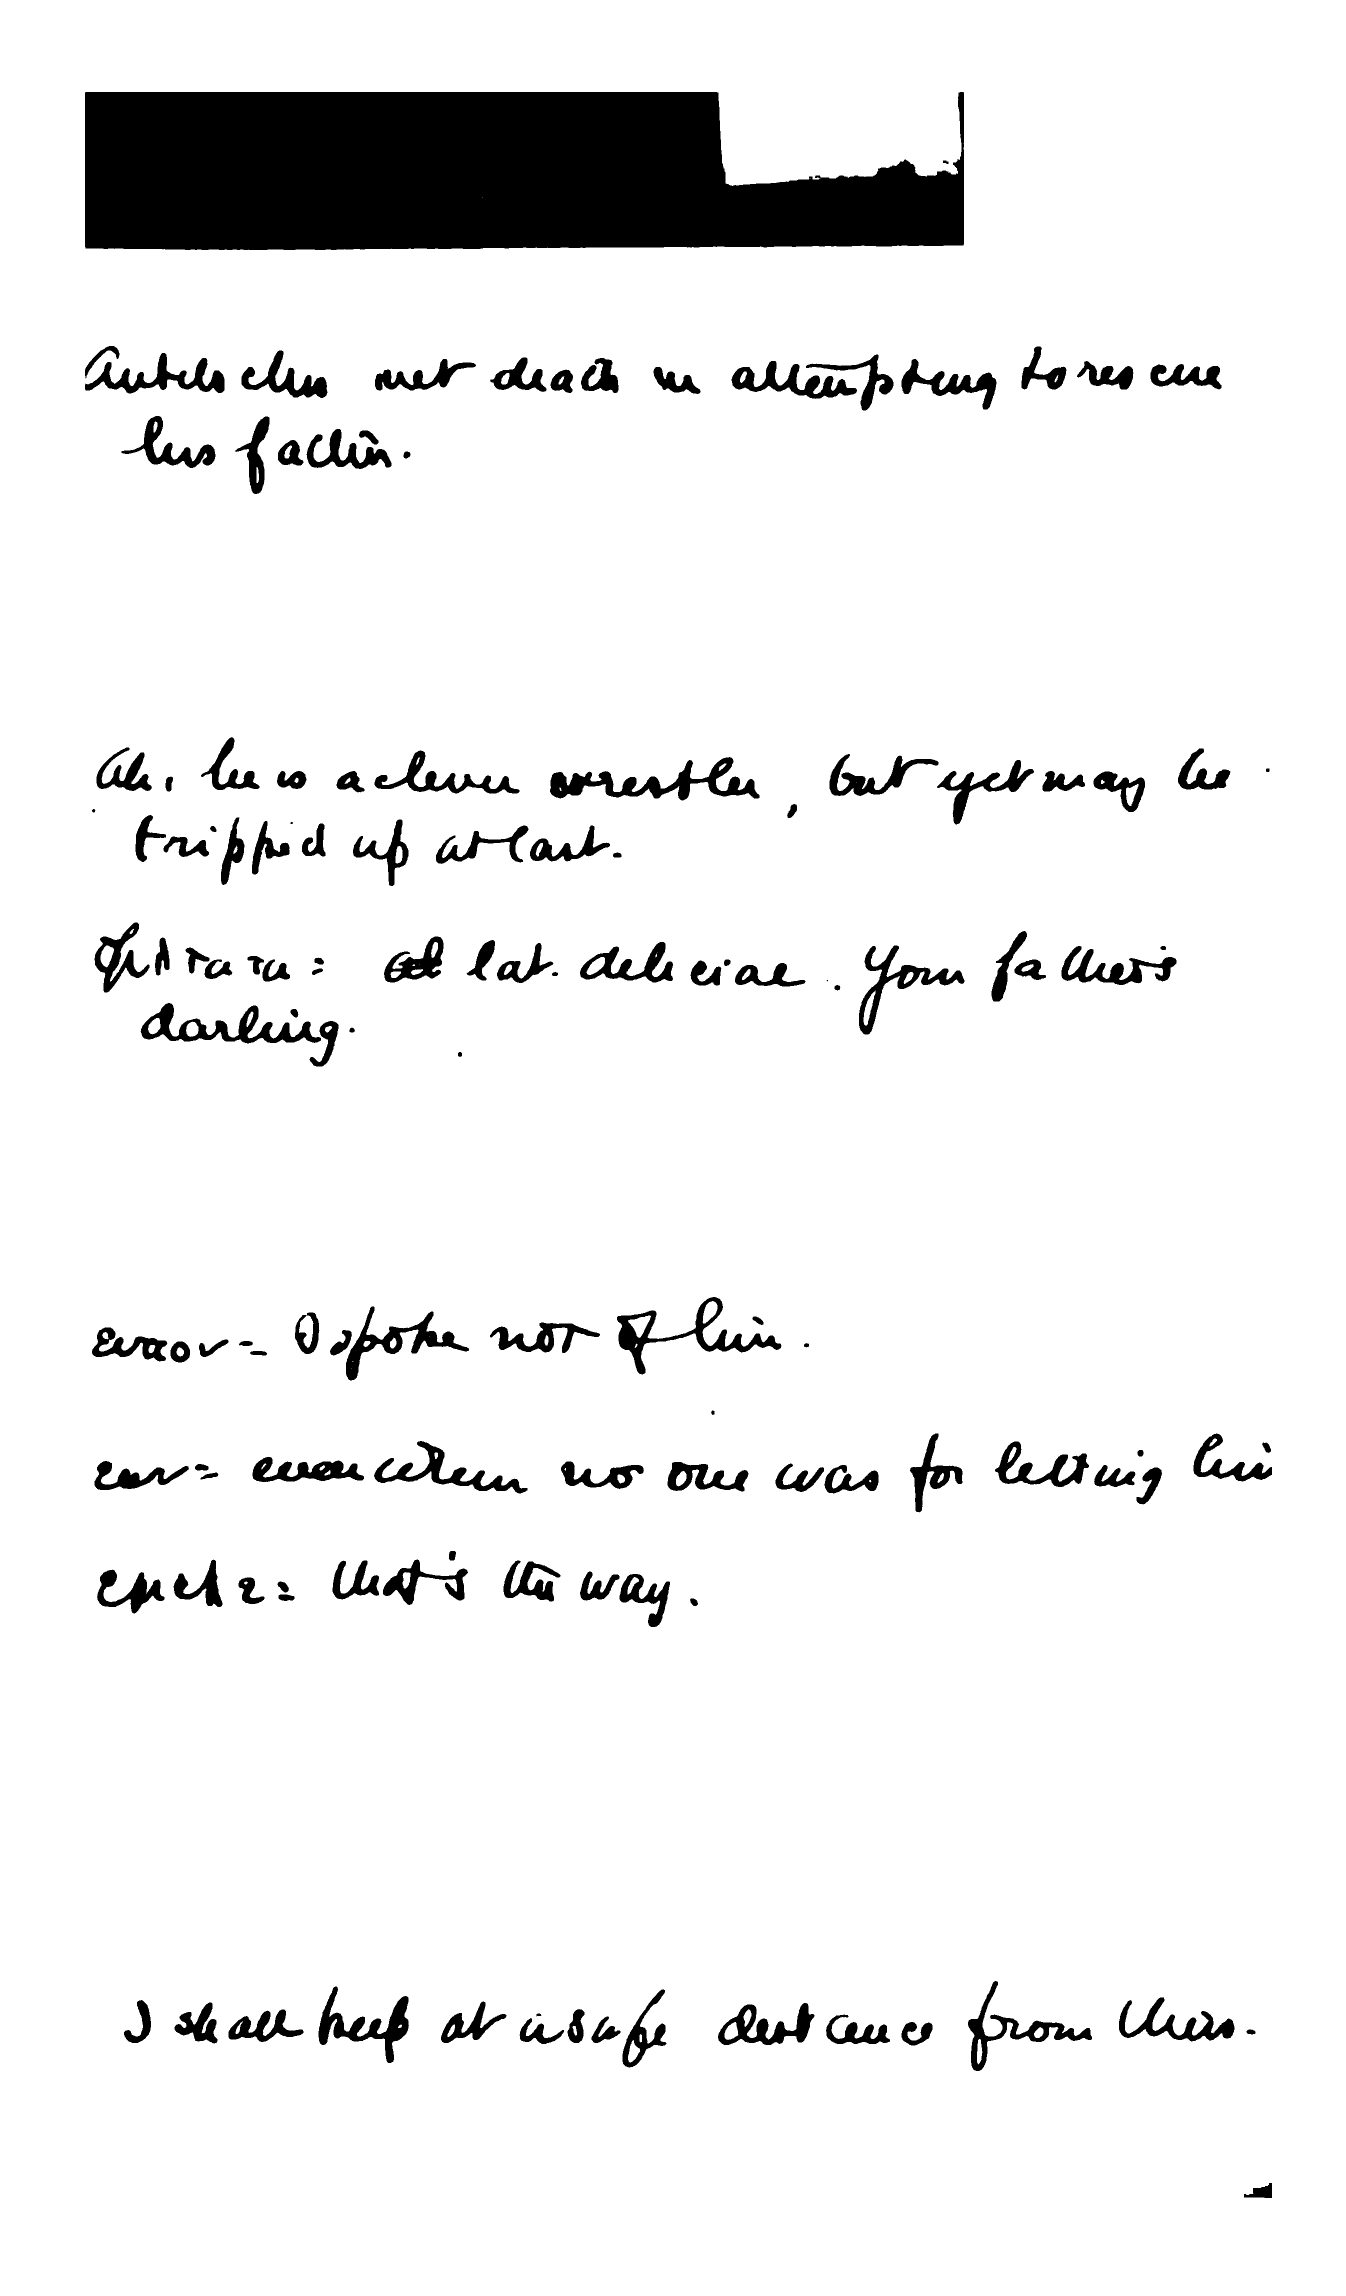 Antilochus met death in attempting to rescue
his father.
Ah, he is a clever wrestler, but yet may be
tripped up at last.
φιλτατα = lat. deliciae. Your father's
darling.
I spoke not of him.
even when no one was for letting him
επειθε = that's the way.
I shall keep at a safe distance from this.